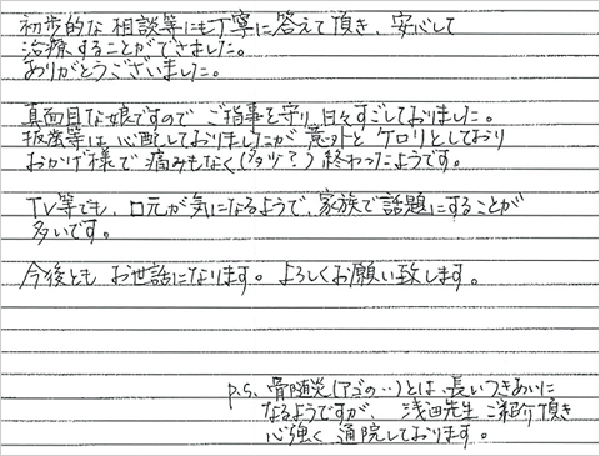 初歩的な相談等にも丁寧に答えて頂き、安心して
治療することができました。
ありがとうございました。
真面目な娘ですので ご指導を守り、日々すごしておりました。
抜歯等は心配しておりましたが 意外と ケロリとしており
おかげ様で 痛みもなく(多少?) 終わったようです。
TV等でも、口元が気になるようで、家族で話題にすることが
多いです。
今後とも お世話になります。よろしくお願い致します。
P.S. 骨髄炎(アゴの…)とは、長いつきあいに
なるようですが、 浅田先生ご紹介頂き
心強く 通院しております。